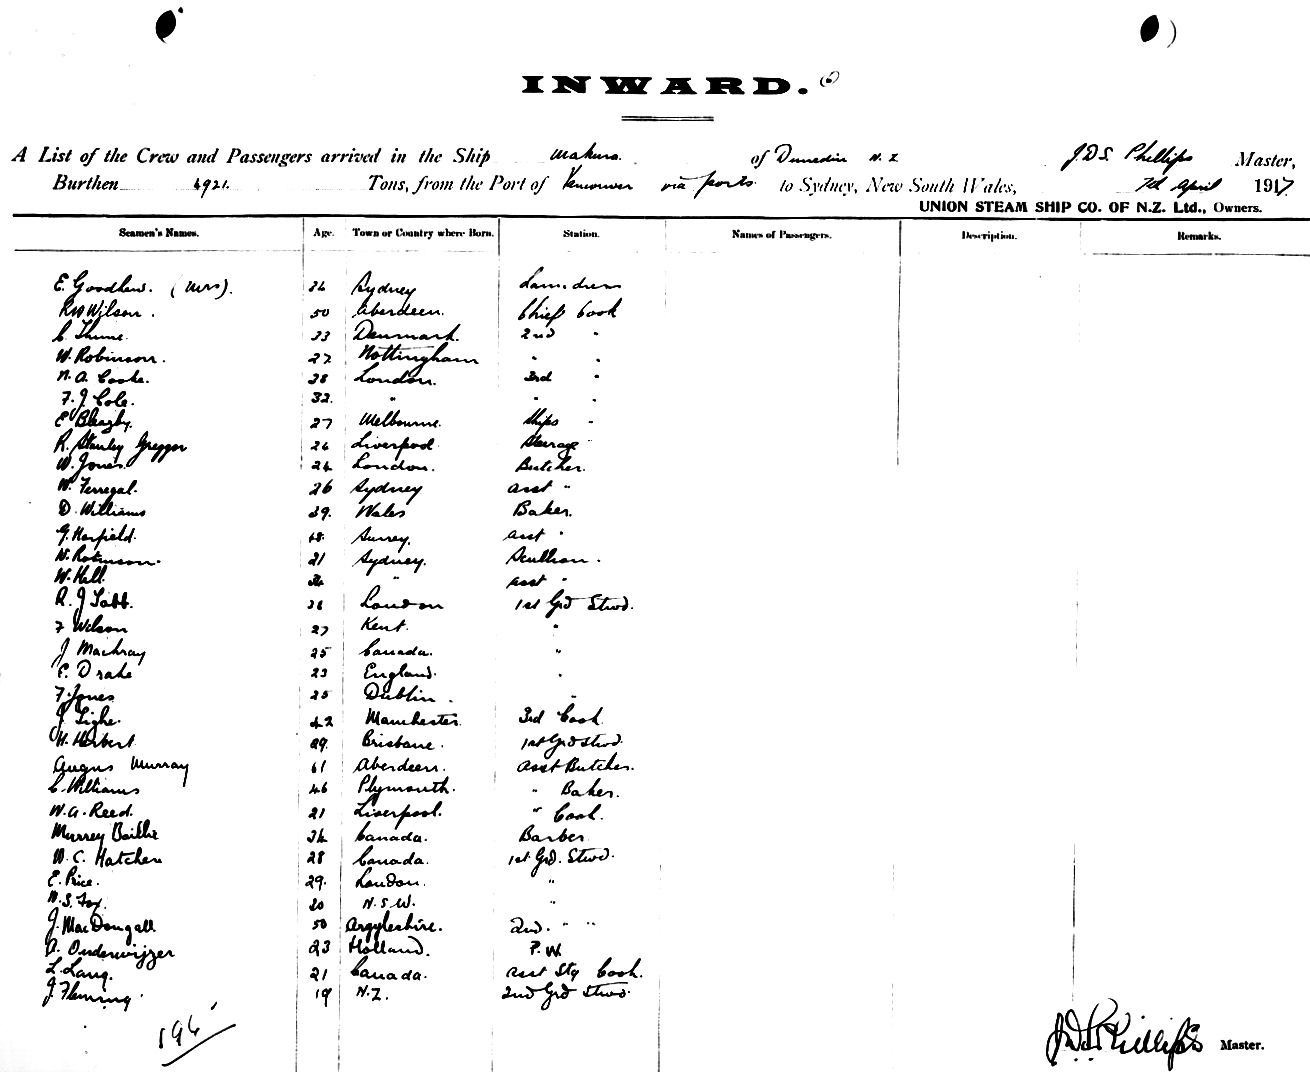 INWARD.
A List of the Crew and Passengers arrived in the Ship Makura. of Dunedin N.Z JDS Phillips Master,
Burthen 4921. Tons, from the Port of Vancouver via ports to Sydney, New South Wales, 7th April 1917.
UNION STEAM SHIP CO. OF N.Z. Ltd., Owners.
Seamen's Names. Age. Town or Country where Born. Station. Names of Passengers. Description. Remarks.
(Mrs). Sydney
Wilson. 50 Aberdeen. Chief Cook
33 Denmark. 2nd "
W. Robinson. 27 Nottingham " "
N. A. Cooke. 28 London. 3rd "
F. J. Cole. 32. " " "
E 27 Melbourne. Ships "
R. Stanley Greggor 26 Liverpool
W. Jones. 24 London. Butcher.
W. 26 Sydney asst "
D. Williams 39. Wales Baker.
G. Surrey. asst "
W. Robinson. 21 Sydney. Scullion.
W. Hall " asst "
R. J London 1st Grd Stwd.
F Wilson 27 Kent. "
J 25 Canada. "
E. Drake 23 England. "
F. Jones 25 Dublin. "
J. Tighe. 42 Manchester. 3rd Cook.
Herbert 29. Brisbane. 1st Grd Stwd.
Angus Murray 61 Aberdeen. asst Butcher.
C. Williams 46 Plymouth. " Baker.
W. A. Reed. 21 Liverpool. " Cook.
Murrey Baillie 34 Canada. Barber
W. C. Hatchen 28 Canada. 1st Grd. Stwd.
E. Price. 29. London. "
W. S. Fox. 20 N.S.W. "
J. MacDougall 50 Argyleshire. 2nd. " "
A. Ouderwijzer 23 Holland. P.W.
L. Lang. 21 Canada. asst Cook.
J Fleming. 19 N.Z. 2nd Grd Stwd.
196
JDS Phillips Master.